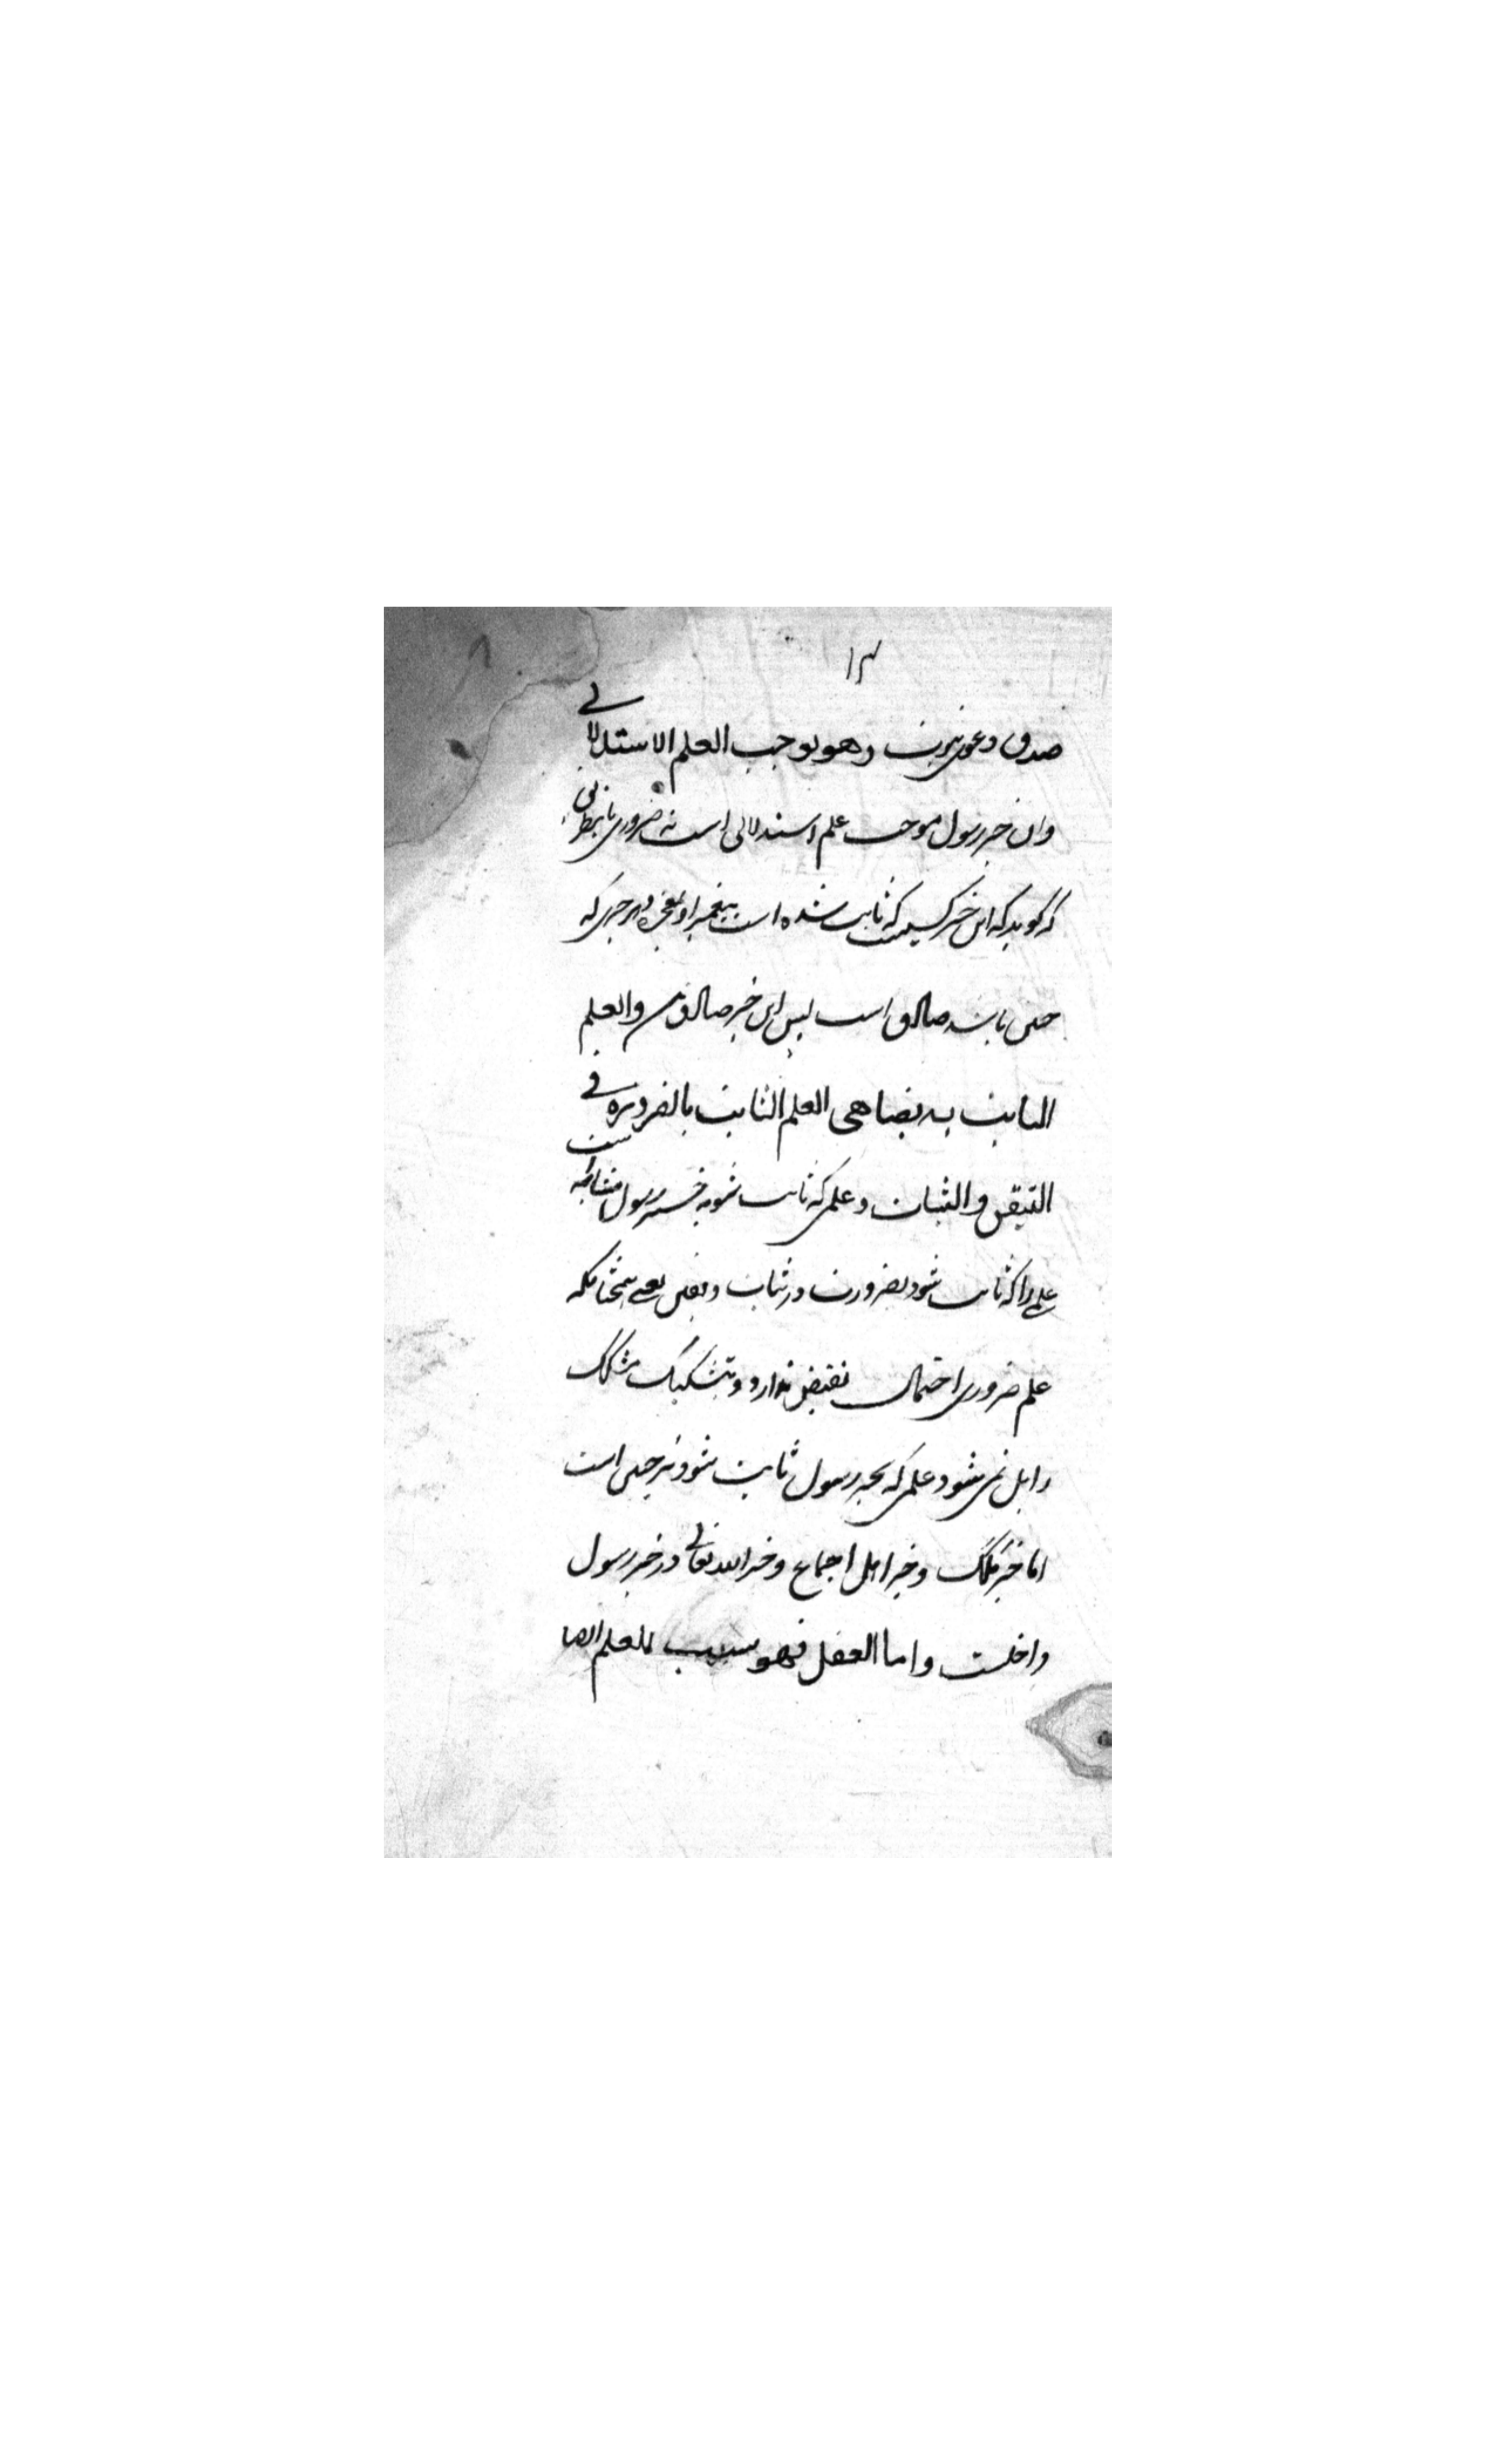 ۱۴
صدق دعوی نبوت وهو یوجب العلم الاستدلالی
وان خبر رسول موجب علم استدلالی است نه ضروری باین طریق
که گوید که این خبر کسیست که ثابت شده است پیغمبر او بمعجزه و هر خبری که
چنین باشد صادق است پس این خبر صادق است والعلم
الثابت به یضاهی العلم الثابت بالضرورة فی
التیقن والثبات و علمی که ثابت شود به خبر رسول مشابه است
علمی را که ثابت شود بضرورت در ثبات و تیقن یعنی همچنانکه
علم ضروری احتمال نقیض ندارد و بتشکیک مشکک
زایل نمی شود علمی که بخبر رسول ثابت شود نیز چنین است
اما خبر ملک و خبر اهل اجماع و خبر الله تعالی در خبر رسول
داخلست واما العقل فهو سبب للعلم ایضا